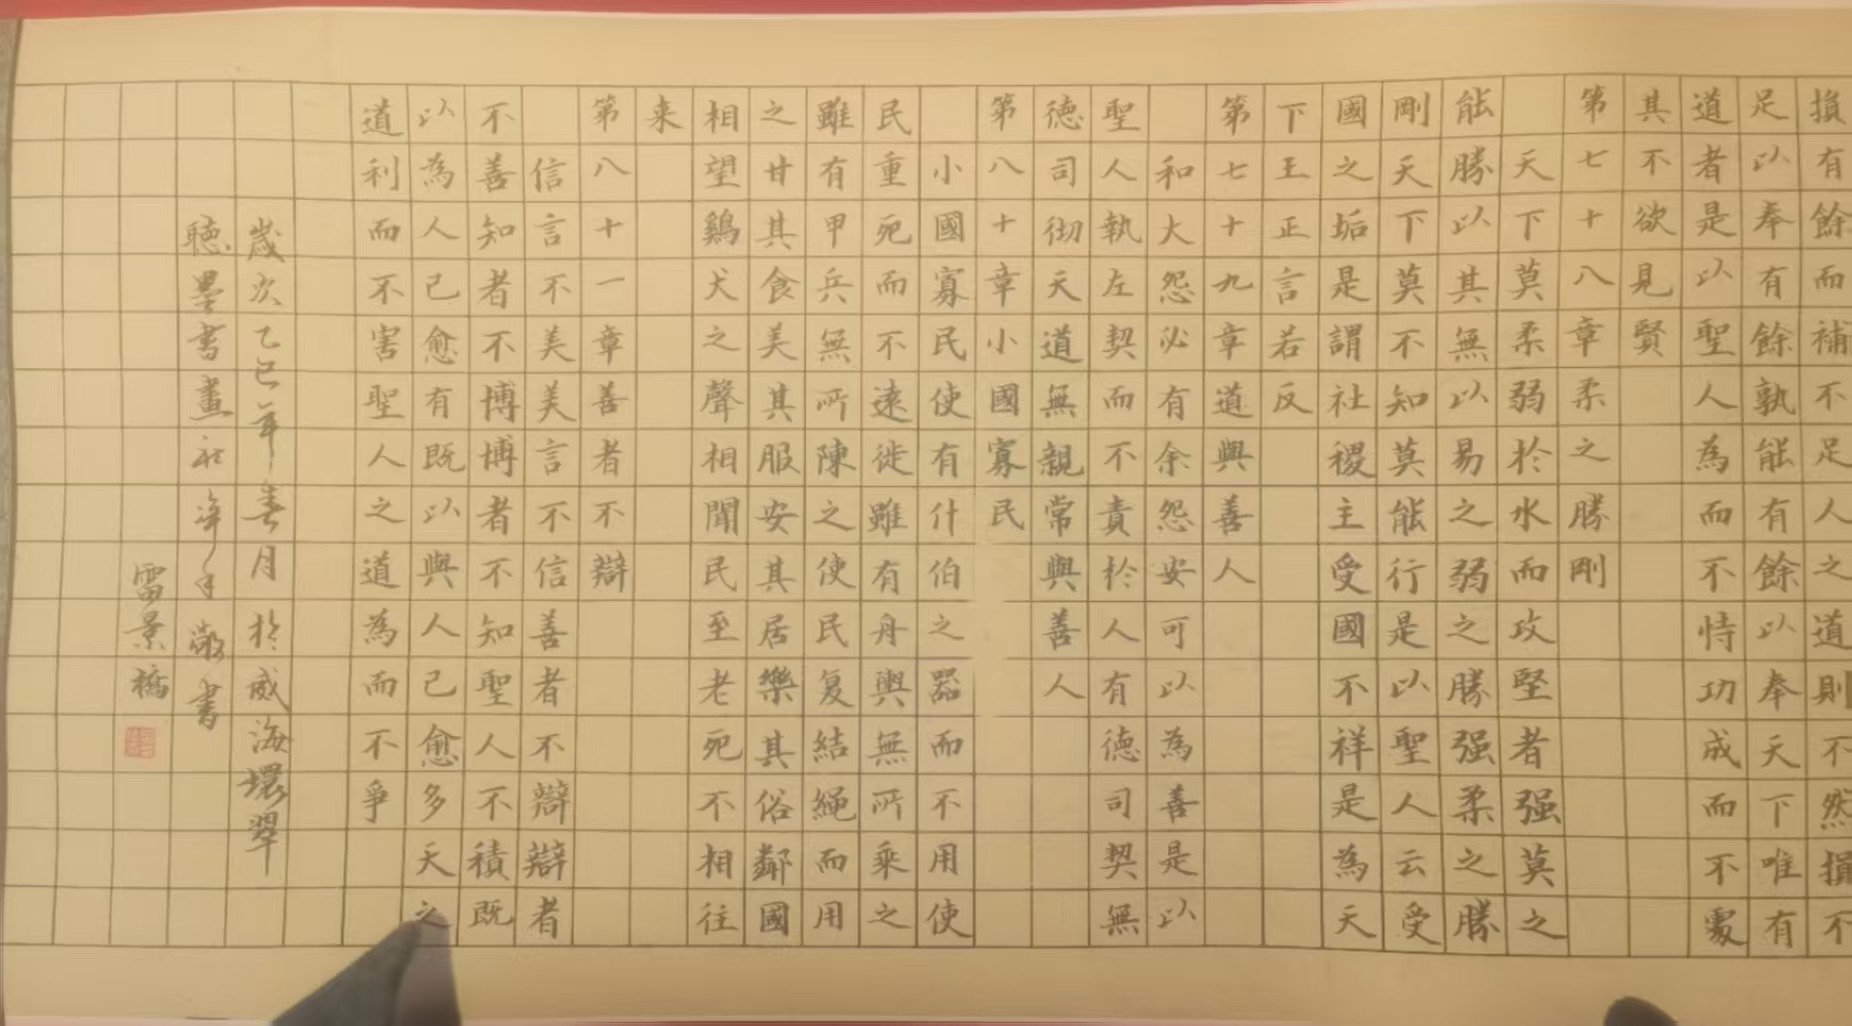 損有餘而補不足人之道則不然損不
足以奉有餘孰能有餘以奉天下唯有
道者是以聖人為而不恃功成而不處
其不欲見賢
第七十八章柔之勝剛
天下莫柔弱於水而攻堅者强莫之
能勝以其無以易之弱之勝强柔之勝
剛天下莫不知莫能行是以聖人云受
國之垢是謂社稷主受國不祥是為天
下王正言若反
第七十九章道與善人
和大怨必有余怨安可以為善是以
聖人執左契而不責於人有德司契無
德司彻天道無親常與善人
第八十章小國寡民
小國寡民使有什伯之器而不用使
民重死而不遠徙雖有舟輿無所乘之
雖有甲兵無所陳之使民复結繩而用
之甘其食美其服安其居樂其俗鄰國
相望鷄犬之聲相聞民至老死不相往
来
第八十一章善者不辯
信言不美美言不信善者不辯辯者
不善知者不博博者不知聖人不積既
以為人己愈有既以與人己愈多天之
道利而不害聖人之道為而不爭
歲次乙巳年春月於威海環翠
聴墨書畫社 敬書
雷景橋